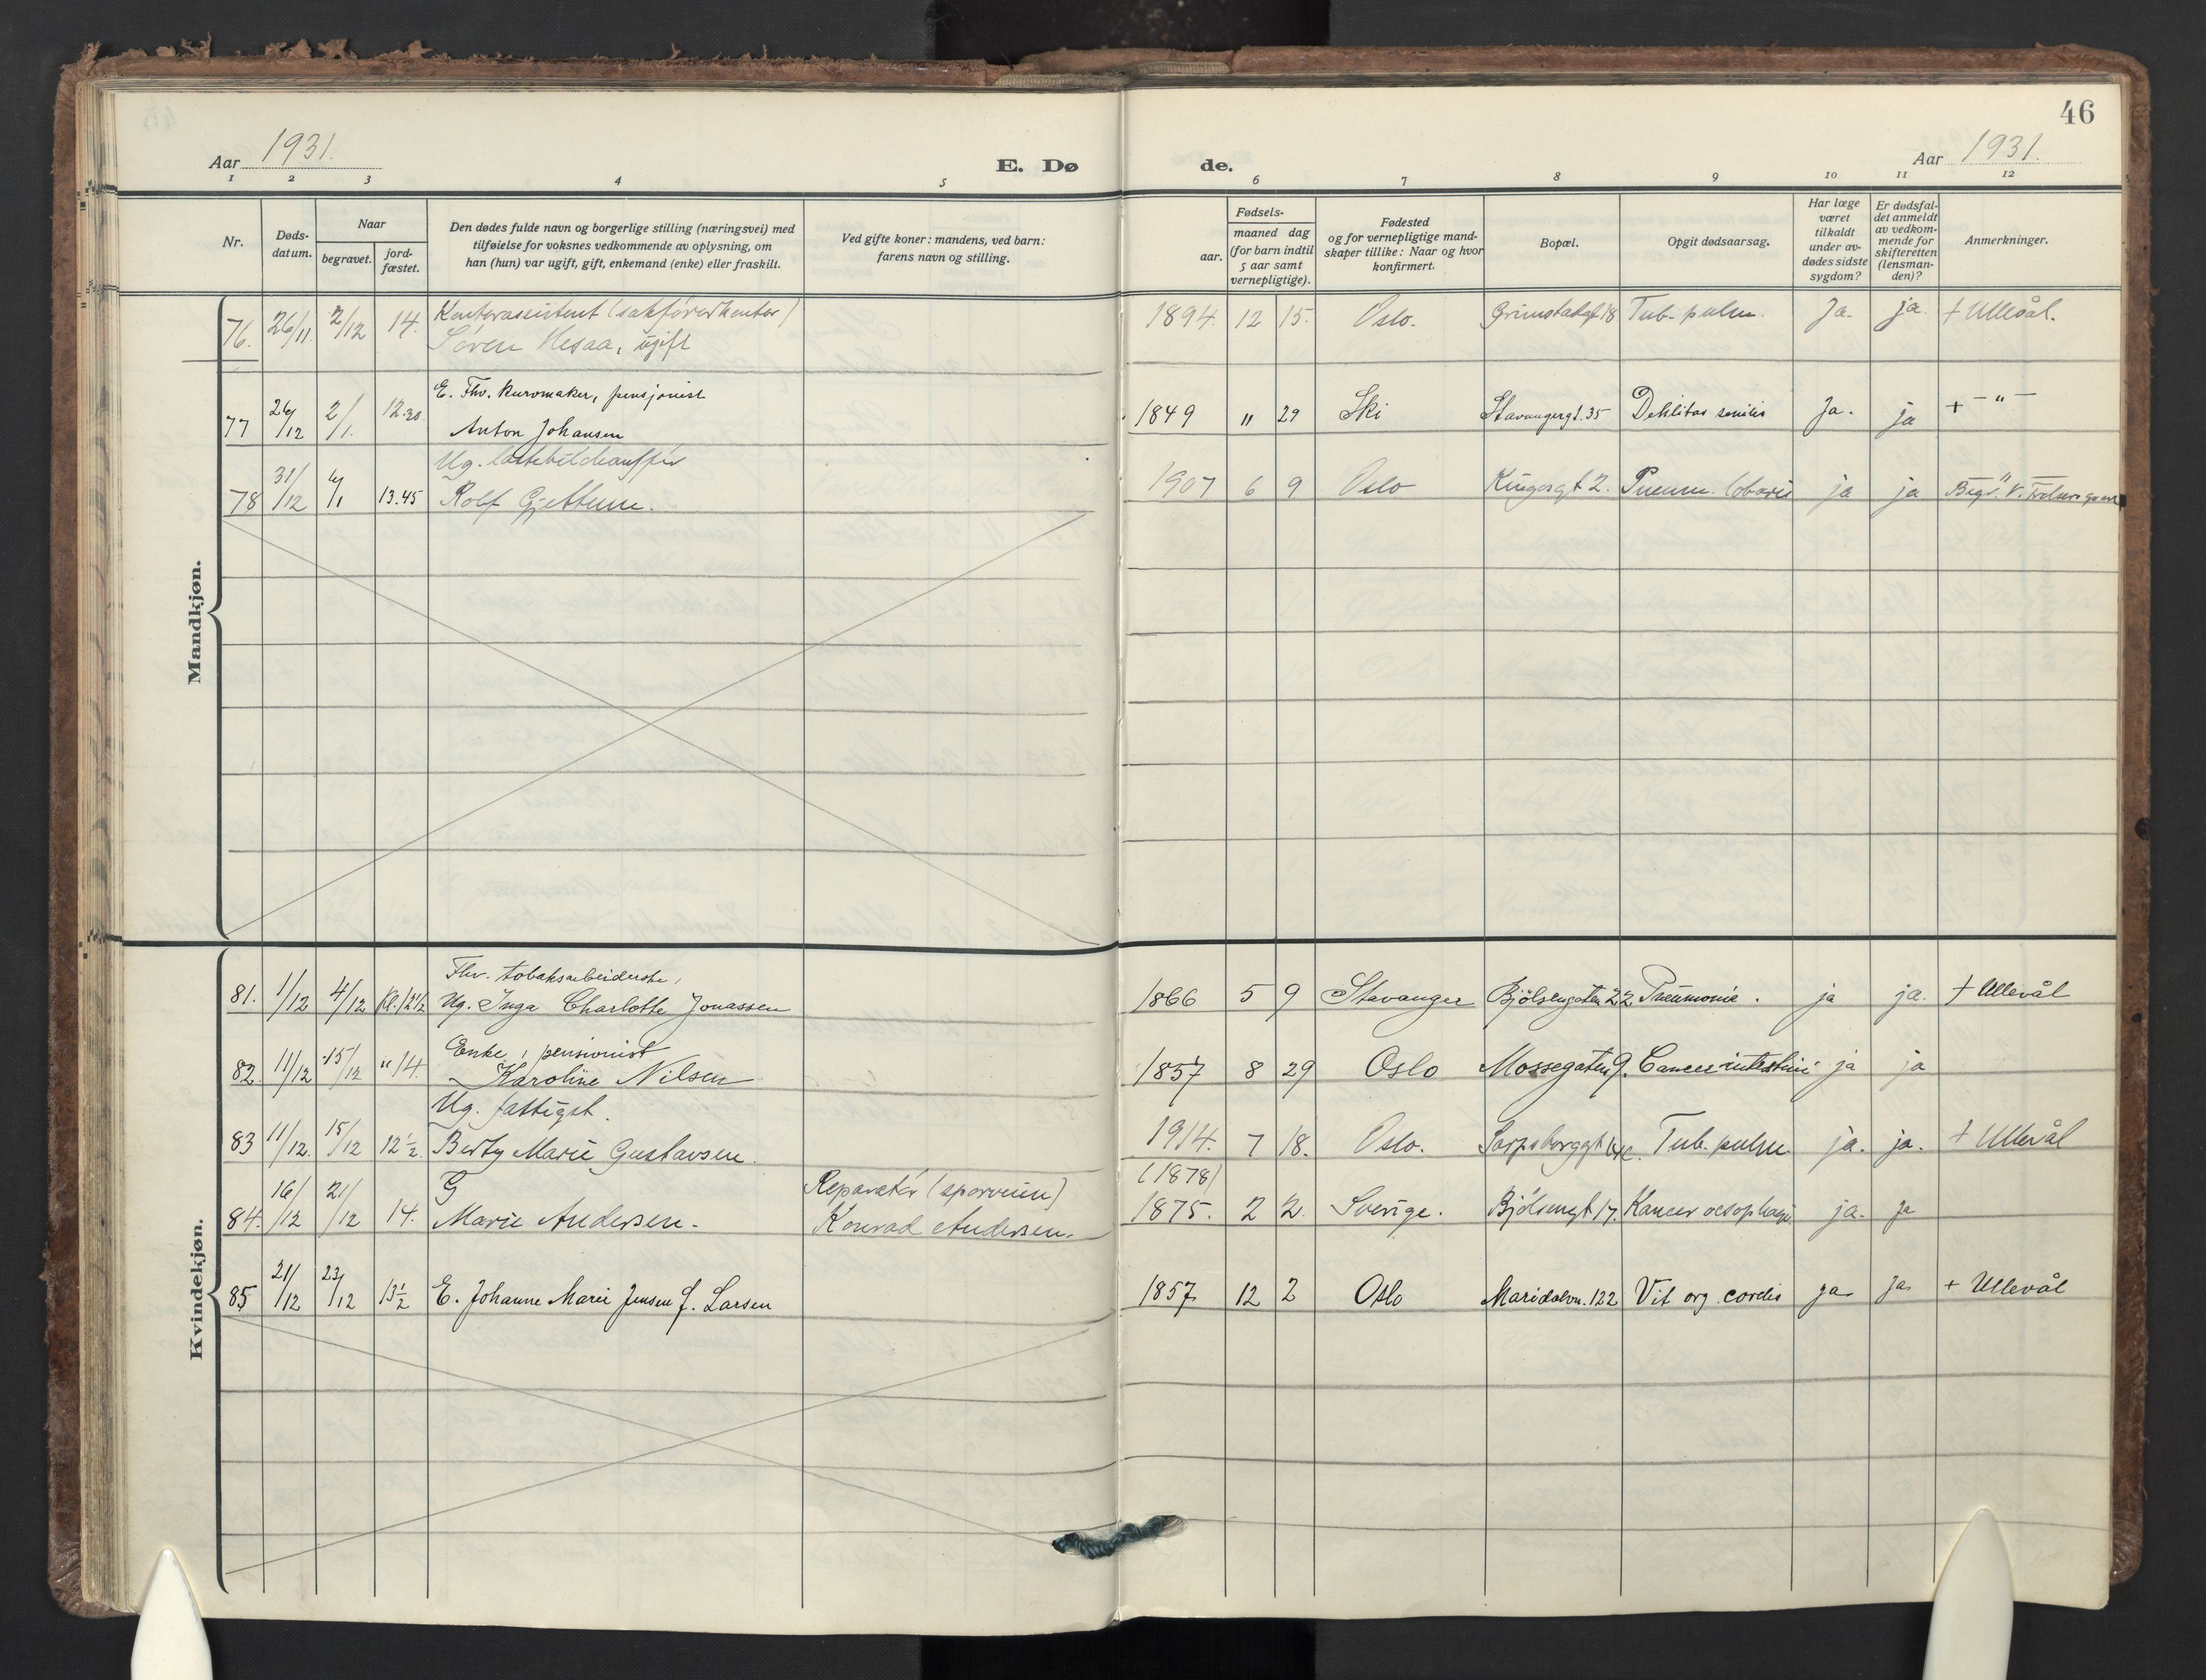 46
Aar 1931.
E. Dø
de.
Aar 1931.
1 2 3 4 5 6 7 8 9 10 11 12
Nr.
Døds-
datum.
Naar
begravet.
jord-
fæstet.
Den dødes fulde navn og borgerlige stilling (næringsvei) med
tilføielse for voksnes vedkommende av oplysning, om
han (hun) var ugift, gift, enkemand (enke) eller fraskilt.
Ved gifte koner: mandens, ved barn:
farens navn og stilling.
Fødsels-
aar.
maaned dag
(for barn indtil
5 aar samt
vernepligtige).
Fødested
og for vernepligtige mand-
skaper tillike: Naar og hvor
konfirmert.
Bopæl.
Opgit dødsaarsag.
Har læge
været
tilkaldt
under av-
dødes sidste
sygdom?
Er dødsfal-
det anmeldt
av vedkom-
mende for
skifteretten
(lensman-
den)?
Anmerkninger.
Mandkjøn.
Kontorassistent (sakførerkontor)
76. 26/11. 2/12 14. Søren Hesaa, ugift 1894. 12 15. Oslo. Grimstadgt 18 Tub. pulm. Ja. ja. † Ullevål.
E. Fhv. kurvmaker, pensjonist
77 26/12 2/1. 12.30 Anton Johansen 1849 11 29 Ski Stavangergt. 35 Debilitas senilis Ja. ja + - " -
Ug. lastebilchauffør
78 31/12 4/1 13.45 Rolf Gjettum. 1907 6 9 Oslo Kingosgt 2. Pneum. lobaris ja ja Begr. V.
Kvindekjøn.
Fhv. tobaksarbeiderske,
81. 1/12 4/12 Kl. 12½ Ug. Inga Charlotte Jonassen 1866 5 9 Stavanger Bjölsengaten 22 Pneumonie. ja ja. † Ullevål
Enke, pensionist
82. 11/12 15/12 " 14. Karoline Nilsen 1857 8 29 Oslo Mossegaten 9. Cancer intestini ja ja
Ug. fattigst.
83 11/12. 15/12 12½. Berby Marie Gustavsen. 1914. 7 18. Oslo. Sarpsborggt Tub. pulm. ja. ja. † Ullevål
G Reparatör (sporveien) (1878)
84. 16/12 21/12 14. Marie Andersen. Konrad Andersen. 1875. 2 2. Sverige. Bjölsengt 17. Kancer oesophagi. ja. ja
85 21/12 23/12 13½ E. Johanne Marie Jensen f. Larsen 1857 12 2 Oslo Maridalsvn. 122 Vit. org. cordis ja. ja. + Ullevål